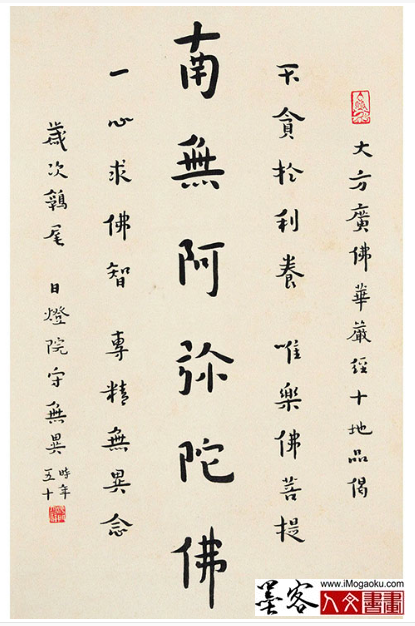 大方廣佛華嚴經十地品偈
不貪於利養 唯樂佛菩提
南無阿彌陀佛
一心求佛智 專精無異念
歲次鶉尾 日燈院守無異 時年五十
www.iMogaoku.com
墨客 人文書畫